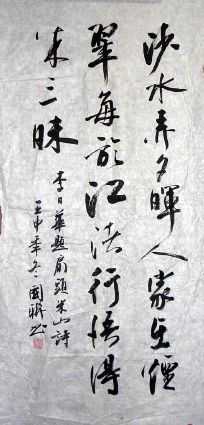 沙水弄夕暉人家在
翠每於江行悟得
米三昧
李日華題扇頭米山詩
壬申年冬國聯書